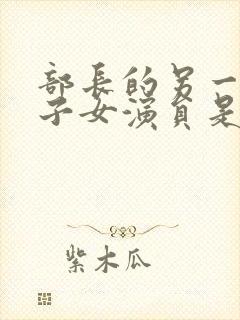 部長的另一
子女演員是
紫木瓜